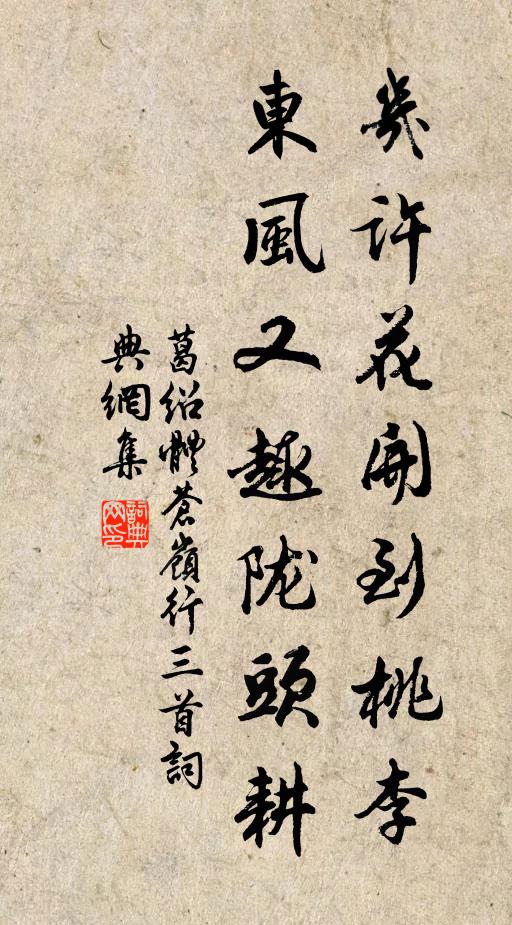 幾許花開到桃李
東風又趣陇頭耕
葛绍體蒼嶺行三首詞
典網集
詞典网印